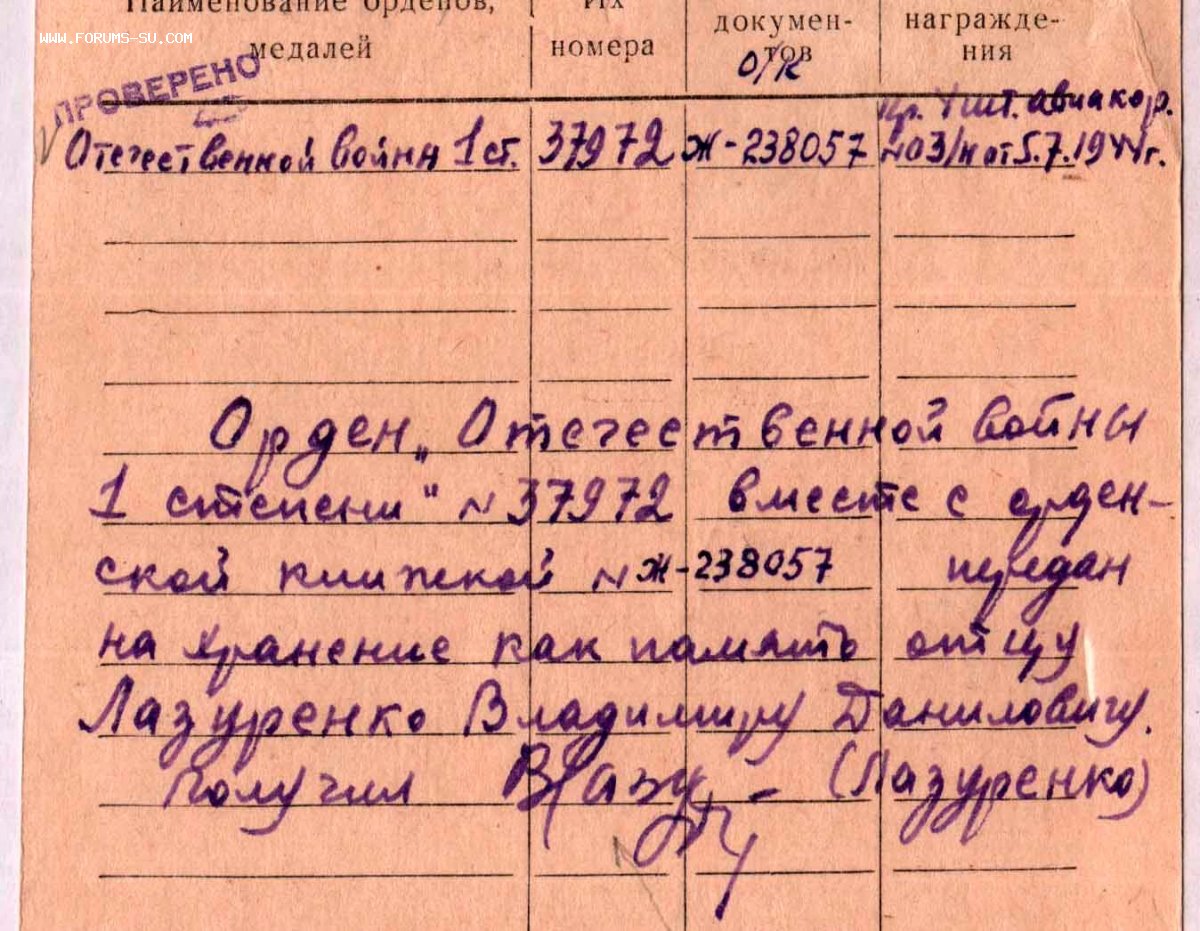 Наименование орденов,
медалей
Их
номера
докумен-
тов
о/к
награжде-
ния
WWW.FORUMS-SU.COM
ПРОВЕРЕНО
Отечественной войны 1 ст. 37972 Ж-238057 Пр. 4 шт. авиакор.
№03/н от 5.7.1944 г.
Орден „Отечественной войны
1 степени" №37972 вместе с орден-
ской книжкой № Ж-238057 передан
на хранение как память отцу
Лазуренко Владимиру Даниловичу.
Получил (Лазуренко)